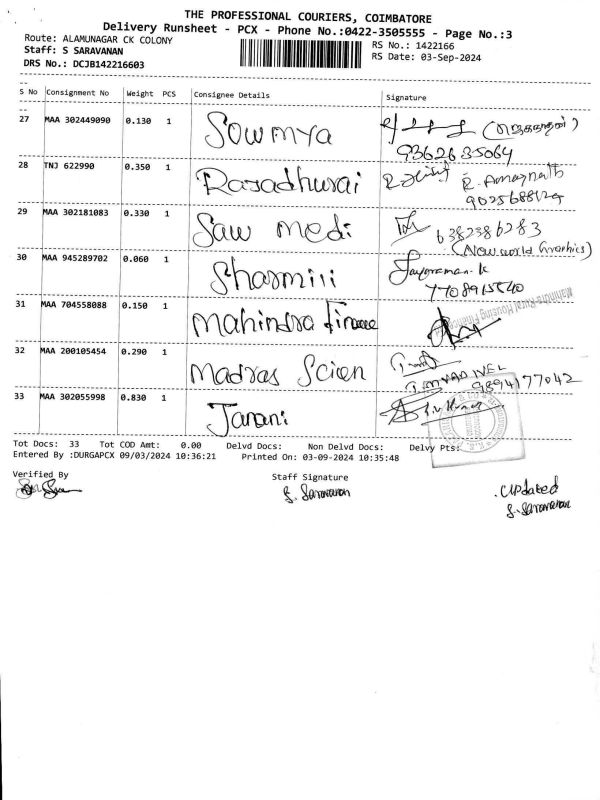 THE PROFESSIONAL COURIERS, COIMBATORE
Delivery Runsheet - PCX - Phone No.:0422-3505555 - Page No.:3
Route: ALAMUNAGAR CK COLONY
RS No.: 1422166
Staff: S SARAVANAN
RS Date: 03-Sep-2024
DRS No.: DCJB142216603
S No Consignment No Weight PCS Consignee Details Signature
27 MAA 302449090 0.130 1 Sowmya
9362635064
28 TNJ 622990 0.350 1 Rajadhurai R. Amarnath
9025688129
29 MAA 302181083 0.330 1 Saw medi 6382386283
(New world Graphics)
30 MAA 945289702 0.060 1 Sharmili Jayaraman.k
7708915840
Mahindra Rural Housing Finance
31 MAA 704558088 0.150 1 Mahindra Finance
32 MAA 200105454 0.290 1 Madras Scien
9894177042
33 MAA 302055998 0.830 1 Janani
Tot Docs: 33 Tot COD Amt: 0.00 Delvd Docs: Non Delvd Docs: Delvy Pts:
Entered By :DURGAPCX 09/03/2024 10:36:21 Printed On: 03-09-2024 10:35:48
Verified By Staff Signature
S. Saravanan
Updated
S. Saravanan